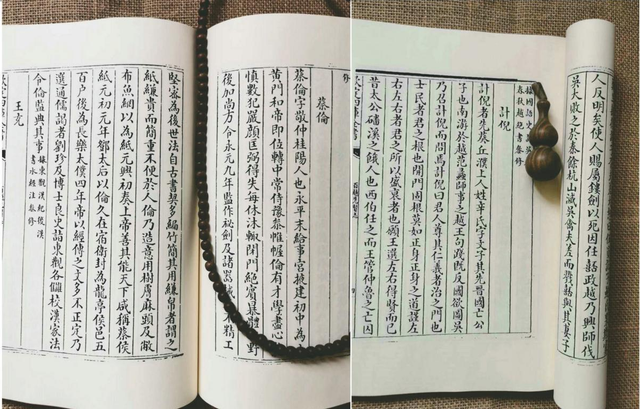 蔡倫
蔡倫字敬仲桂陽人也永平末給事宮掖建初中為
黃門和帝即位轉中常侍豫參帷幄倫有才學盡心
慎數犯嚴顏匡弼得失每休沐輒閉門絕賓暴體野
後加尚方令永元九年監作秘劍及諸器精工
堅密為後世法自古書契多編竹簡其用縑帛者謂之
紙縑貴而簡重不便於人倫乃造意用樹膚麻頭及敝
布魚網以為紙元興初奏上帝善其能天下咸稱蔡侯
紙元初元年鄧太后以倫久在宿衛封為龍亭侯邑五
百戶後為長樂太僕四年帝以經傳之文多不正定乃
選通儒謁者劉珍及博士良史詣東觀各讎校漢家法
令倫監典其事據東觀漢紀後漢
書水經注參修
王充
人反明矣使人賜屬鏤劍以死因任嚭政越乃興師伐
吳大敗之於秦餘杭山滅吳禽夫差而戮嚭與其妻子
據國語史記吳越
春秋越絕書參修
計倪
計倪者先葵丘濮上人姓辛氏字文子其先晉國亡公
子也南游於越范蠡師事之越王句踐既反國欲圖吳
乃召計倪而問焉計倪曰君人尊其仁義者治之門也
士民者君之根也開門固根莫如正身正身之道謹左
右左右者君之所以盛衰者也願王選左右得賢而已
昔太公磻溪之餓人也西伯任之而王管仲魯之亡囚